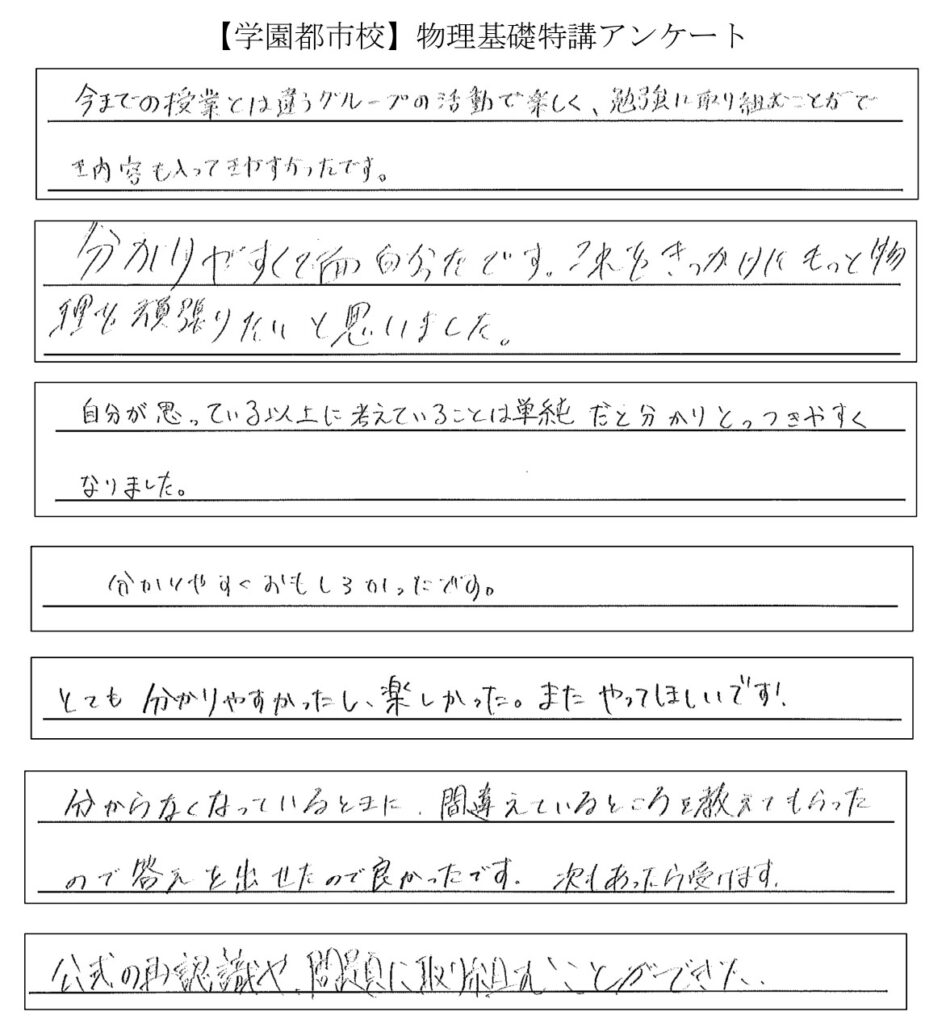 【学園都市校】物理基礎特講アンケート
今までの授業とは違うグループの活動で楽しく、勉強に取り組むことがで
き内容も入ってきやすかったです。
分かりやすくて面白かったです。これをきっかけにもっと物
理を頑張りたいと思いました。
自分が思っている以上に考えていることは単純だと分かりとっつきやすく
なりました。
分かりやすくおもしろかったです。
とても分かりやすかったし、楽しかった。またやってほしいです!
分からなくなっているときに、間違えているところを教えてもらった
ので答えを出せたので良かったです。次もあったら受けます。
公式の再認識や、問題に取り組むことができた。